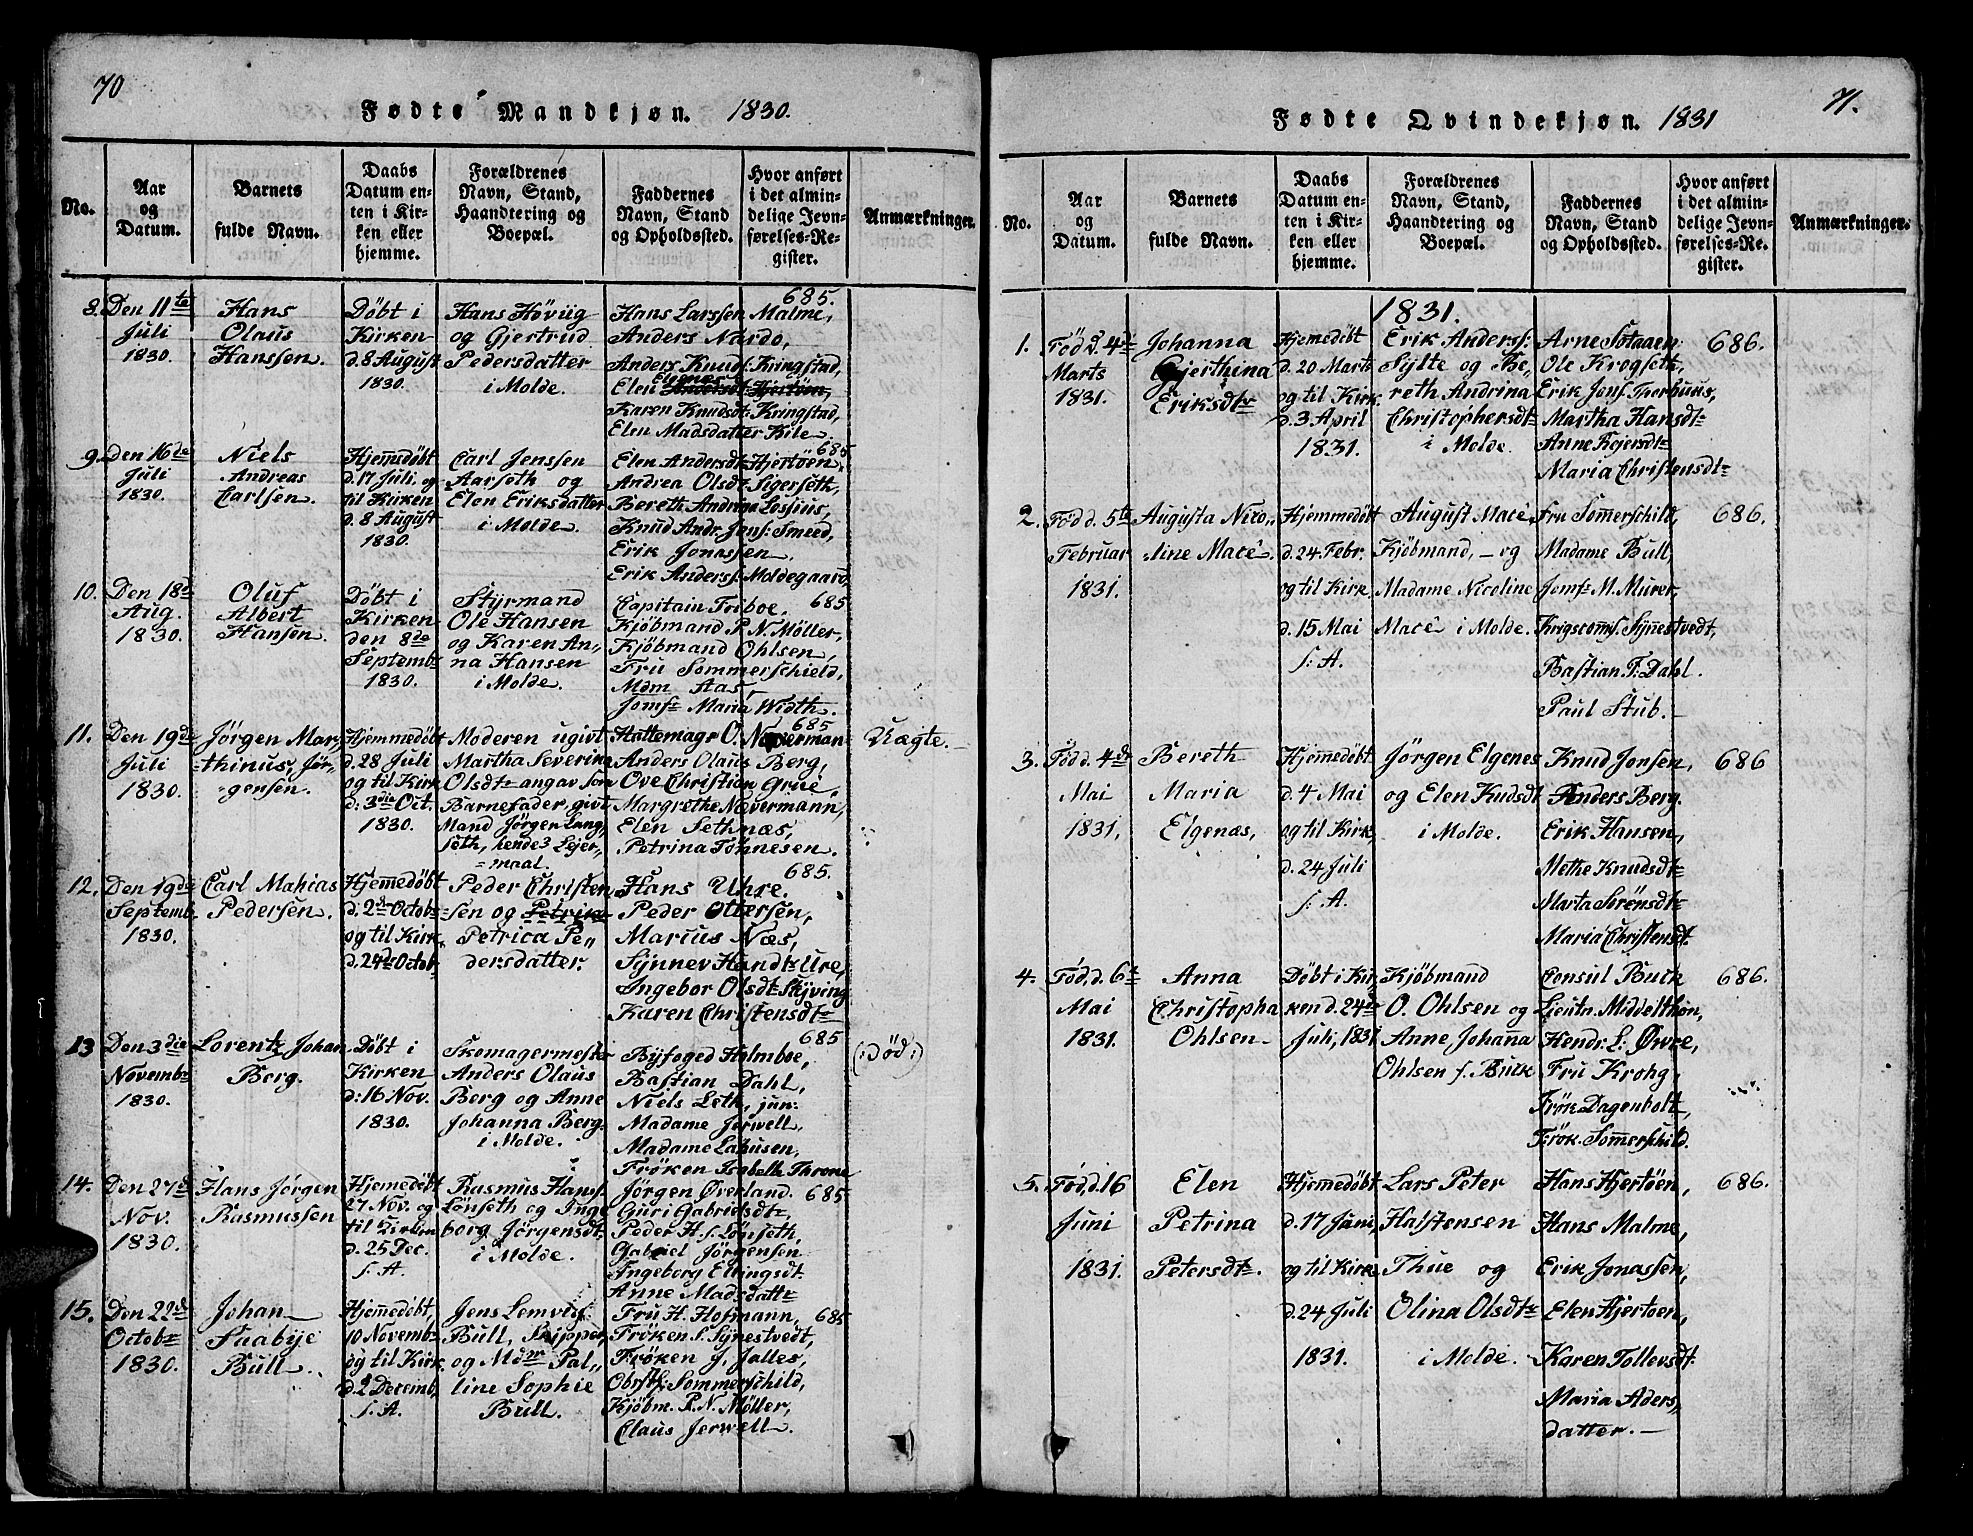 70
Fødte Mandkjøn. 1830.
No.
Aar
og
Datum.
Barnets
fulde Navn.
Daabs
Datum en-
ten i Kir-
ken eller
hjemme.
Forældrenes
Navn, Stand,
Haandtering og
Boepæl.
Faddernes
Navn, Stand
og Opholdssted.
Hvor anført
i det almin-
delige Jevn-
førelses-Re-
gister.
Anmærkninger.
8. Den 11te
Juli
1830.
Hans
Olaus
Hanssen.
Døbt i
Kirken
d. 8 August
1830.
Hans Hövug
og Gjertrud
Pedersdatter
i Molde.
Hans Larssen Malme,
Anders Nardo,
Anders Knuds: Kringstad,
Elen
Karen Knudsdt: Kringstad,
Elen Madsdatter Kile.
685.
9. Den 16de
Juli
1830.
Niels
Andreas
Carlsen.
Hjemedöbt
d. 17 Juli, og
til Kirken
d. 8 August
1830.
Carl Jenssen
Aarseth og
Elen Eriksdatter
i Molde.
Elen Andersdt: Hjertöen,
Andrea Olsdt: Sigerseth,
Bereth Andrina Lossius,
Knud Andr. Jens: Smeed,
Erik Jonassen.
Erik Anderss: Moldegaard,
685
10. Den 18de
Aug.
1830.
Oluf
Albert
Hansen.
Döbt i
Kirken
den 8de
Septembr
1830.
Styrmand
Ole Hansen
og Karen An,,
na Hansen
i Molde.
Capitain Friboe,
Kjöbmand P. N. Möller,
Kjöbmand Ohlsen,
Fru Sommerschield,
Mdm Aas,
Jomfr Maria Width.
685
11. Den 19de
Juli
1830.
Jörgen Mar,,
thinus, Jör-
gensen.
Hjemmedöbt
d. 28 Juli
og til Kirk
d: 3die Oct.
1830.
Moderen ugivt
Martha Severina
Olsdtr angav som
Barnefader, givt
Mand Jörgen Lang,,
seth, hendes Lejer,,
maal.
Hattemagr O. Naverman
Anders Olaus Berg,
Ove Christian Grüe,
Margrethe Navermann,
Elen Sethnæs,
Petrina Tönnesen.
685
Uægte.
12. Den 19de
Septemb.
1830.
Carl Mathias
Pedersen.
Hjemedöbt
d. 2den Octobr
og til Kirk
d. 24de Octobr
Peder Christen
sen og Petrika
Petrica Pe,,
dersdatter.
Hans Uhre.
Peder Ottersen,
Marius Næs,
Synnev Handtr Ure,
Ingebor Olsdtr Skjving
Karen Christensdtr
685.
13 Den 3die
Novembr
1830.
Lorentz Johan
Berg.
Döbt i
Kirken
d: 16 Nov.
1830.
Skomagermester
Anders Olaus
Berg og Anne
Johanna Berg.
i Molde.
Byfoged Holmboe,
Bastian Dahl,
Niels Leth, jun:
Madame Jerwell,
Madame Lahusen,
Fröken Isabelle Throne
685
(Död.)
14. Den 27de
Nov.
1830.
Hans Jörgen
Rasmussen
Hjemedöbt
27 Nov. og
til Kirken
d. 25 Dec.
s. A.
Rasmus Hanss.
Lönseth og Inge
borg Jörgensdt.
i Molde.
Jörgen Øverland.
Guri Gabrielsdtr,
Peder H. s. Lönseth,
Gabriel Jörgensen
Ingeborg Ellingsdt.
Anne Madsdattr
685
15. Den 22de
Octobr
1830.
Johan
Saabye
Bull.
Hjemedöbt
10 Novembr
og til Kirk
d. 2 Decemb,
s. A.
Jens Lemvigs:
Bull, Skipper,
og Mdme Pal,,
line Sophie
Bull.
Fru H. Hofmann,
Fröken S. Synestvedt,
Fröken J. Jalles,
Obrstl: Sommerschild,
Kjöbm. P. N. Möller,
Claus Jerwell.
685
71.
Fødte Qvindekjøn. 1831
No.
Aar
og
Datum.
Barnets
fulde Navn.
Daabs
Datum en-
ten i Kir-
ken eller
hjemme.
Forældrenes
Navn, Stand,
Haandtering og
Boepæl.
Faddernes
Navn, Stand
og Opholdssted.
Hvor anført
i det almin-
delige Jevn-
førelses-Re-
gister.
Anmærkninger.
1831.
1. Föd d. 4de
Marts
1831.
Johanna
Gjerthina
Eriksdtr
Hjemedöbt
d. 20 Marts
og til Kirk
d. 3 April
1831.
Erik Anderss:
Sylte og Be,
reth Andrina
Christophersdt
i Molde.
Arne Sotaaen
Ole Krogseth,
Erik Jons. Thorhuus,
Martha Hansdtr
Anne Rejersdtr
Maria Christensdtr
686.
2. Föd d. 5te
Februar
1831.
Augusta Nico,,
line Macé.
Hjemmedöbt
d. 24 Febr.
og til Kirk.
d. 15 Mai
s. A.
August Macé,
Kjöbmand, — og
Madame Nicoline
Macé i Molde.
Fru Somerschild,
Madame Bull,
Jomfr M. Murer,
Krigscoms. Synestvedt,
Bastian T. Dahl.
Paul Stub.
686.
3. Föd d. 4de
Mai
1831,
Bereth
Maria
Elgenæs,
Hjemedöbt
d. 4 Mai
og til Kirk,
d. 24 Juli
s. A.
Jörgen Elgenes
og Elen Kudsdt
i Molde.
Knud Jonsen,
Anders Berg.
Erik Hansen,
Methe Knudsdtr
Marta Sörensdtr
Maria Christensdt.
686
4. Föd, d. 6te
Mai
1831.
Anna
Christopha
Ohlsen
Döbt i Kir,
ken d. 24de
Juli, 1831
Kjöbmand
O. Ohlsen og
Anne Johana
Ohlsen f. Buck
Consul Buck
Lieutn. Middelthon,
Hendr. L. Øvre,
Fru Krohg,
Frök Dagenbolt,
Frök. Somerschild.
686.
5. Föd, d. 16
Juni
1831.
Elen
Petrina
Petersdtr.
Hjemedöbt
d. 17 Juni,
og til Kirk.
d. 24 Juli
1831.
Lars Peter
Halstensen
Thue og
Olina Olsdtr
i Molde.
Hans Hjertöen,
Hans Malme,
Erik Jonassen,
Elen Hjertoen,
Karen Tollevsdt.
Maria Aders,,
datter.
686.